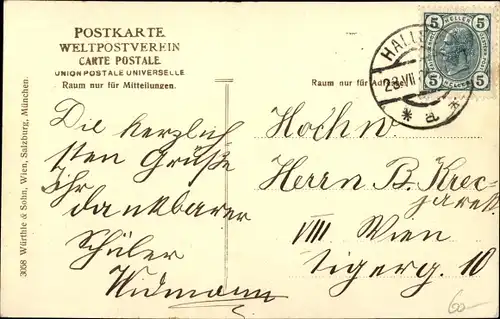 POSTKARTE
WELTPOSTVEREIN
CARTE POSTALE
UNION POSTALE UNIVERSELLE
Raum nur für Mitteilungen.
Raum nur für Adresse
5 HELLER 5
5 HELLER 5
HALL
28.VII
* a *
3058 Würthle & Sohn, Wien, Salzburg, München.
Die herzlich
sten Grüße
Ihr
dankbarer
Schüler
Widmann
Hochn.
Herrn B. Krec-
VIII Wien
Tigerg. 10
60-